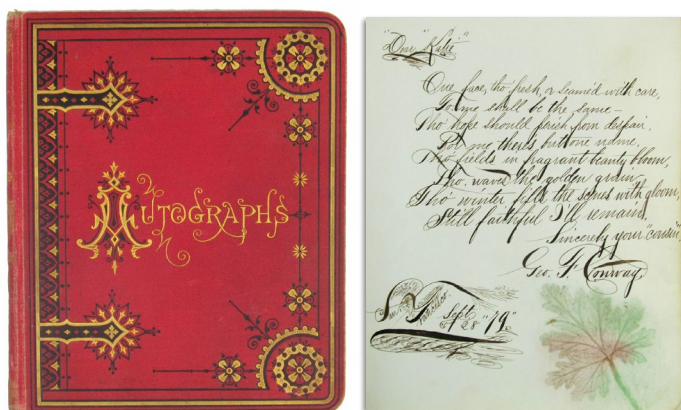 AUTOGRAPHS
"Dear "Katie"
One face, tho' fresh, or seam'd with care,
To me shall be the same –
Tho' hope should perish from despair,
For me there's but one name.
Tho' fields in fragrant beauty bloom,
Tho. waves the golden grain,
Tho' winter, fills the scenes with gloom,
Still faithful I'll remain.
Sincerely your "cousin"
Geo. F. Conway
San Francisco
Sept
28 "79"